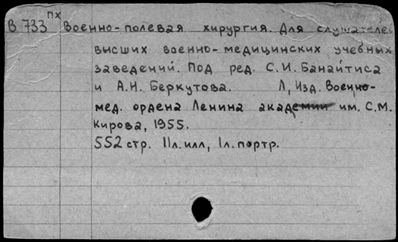 пх
В 733 Военно-полевая хирургия. Для слушателей
высших военно-медицинских учебных
заведений. Под ред. С.И. Банайтиса
и А.Н. Беркутова. Л, Изд. Военно-
мед. ордена Ленина академии им. С.М.
Кирова, 1955.
552 стр. 11л.илл, 1л.портр.